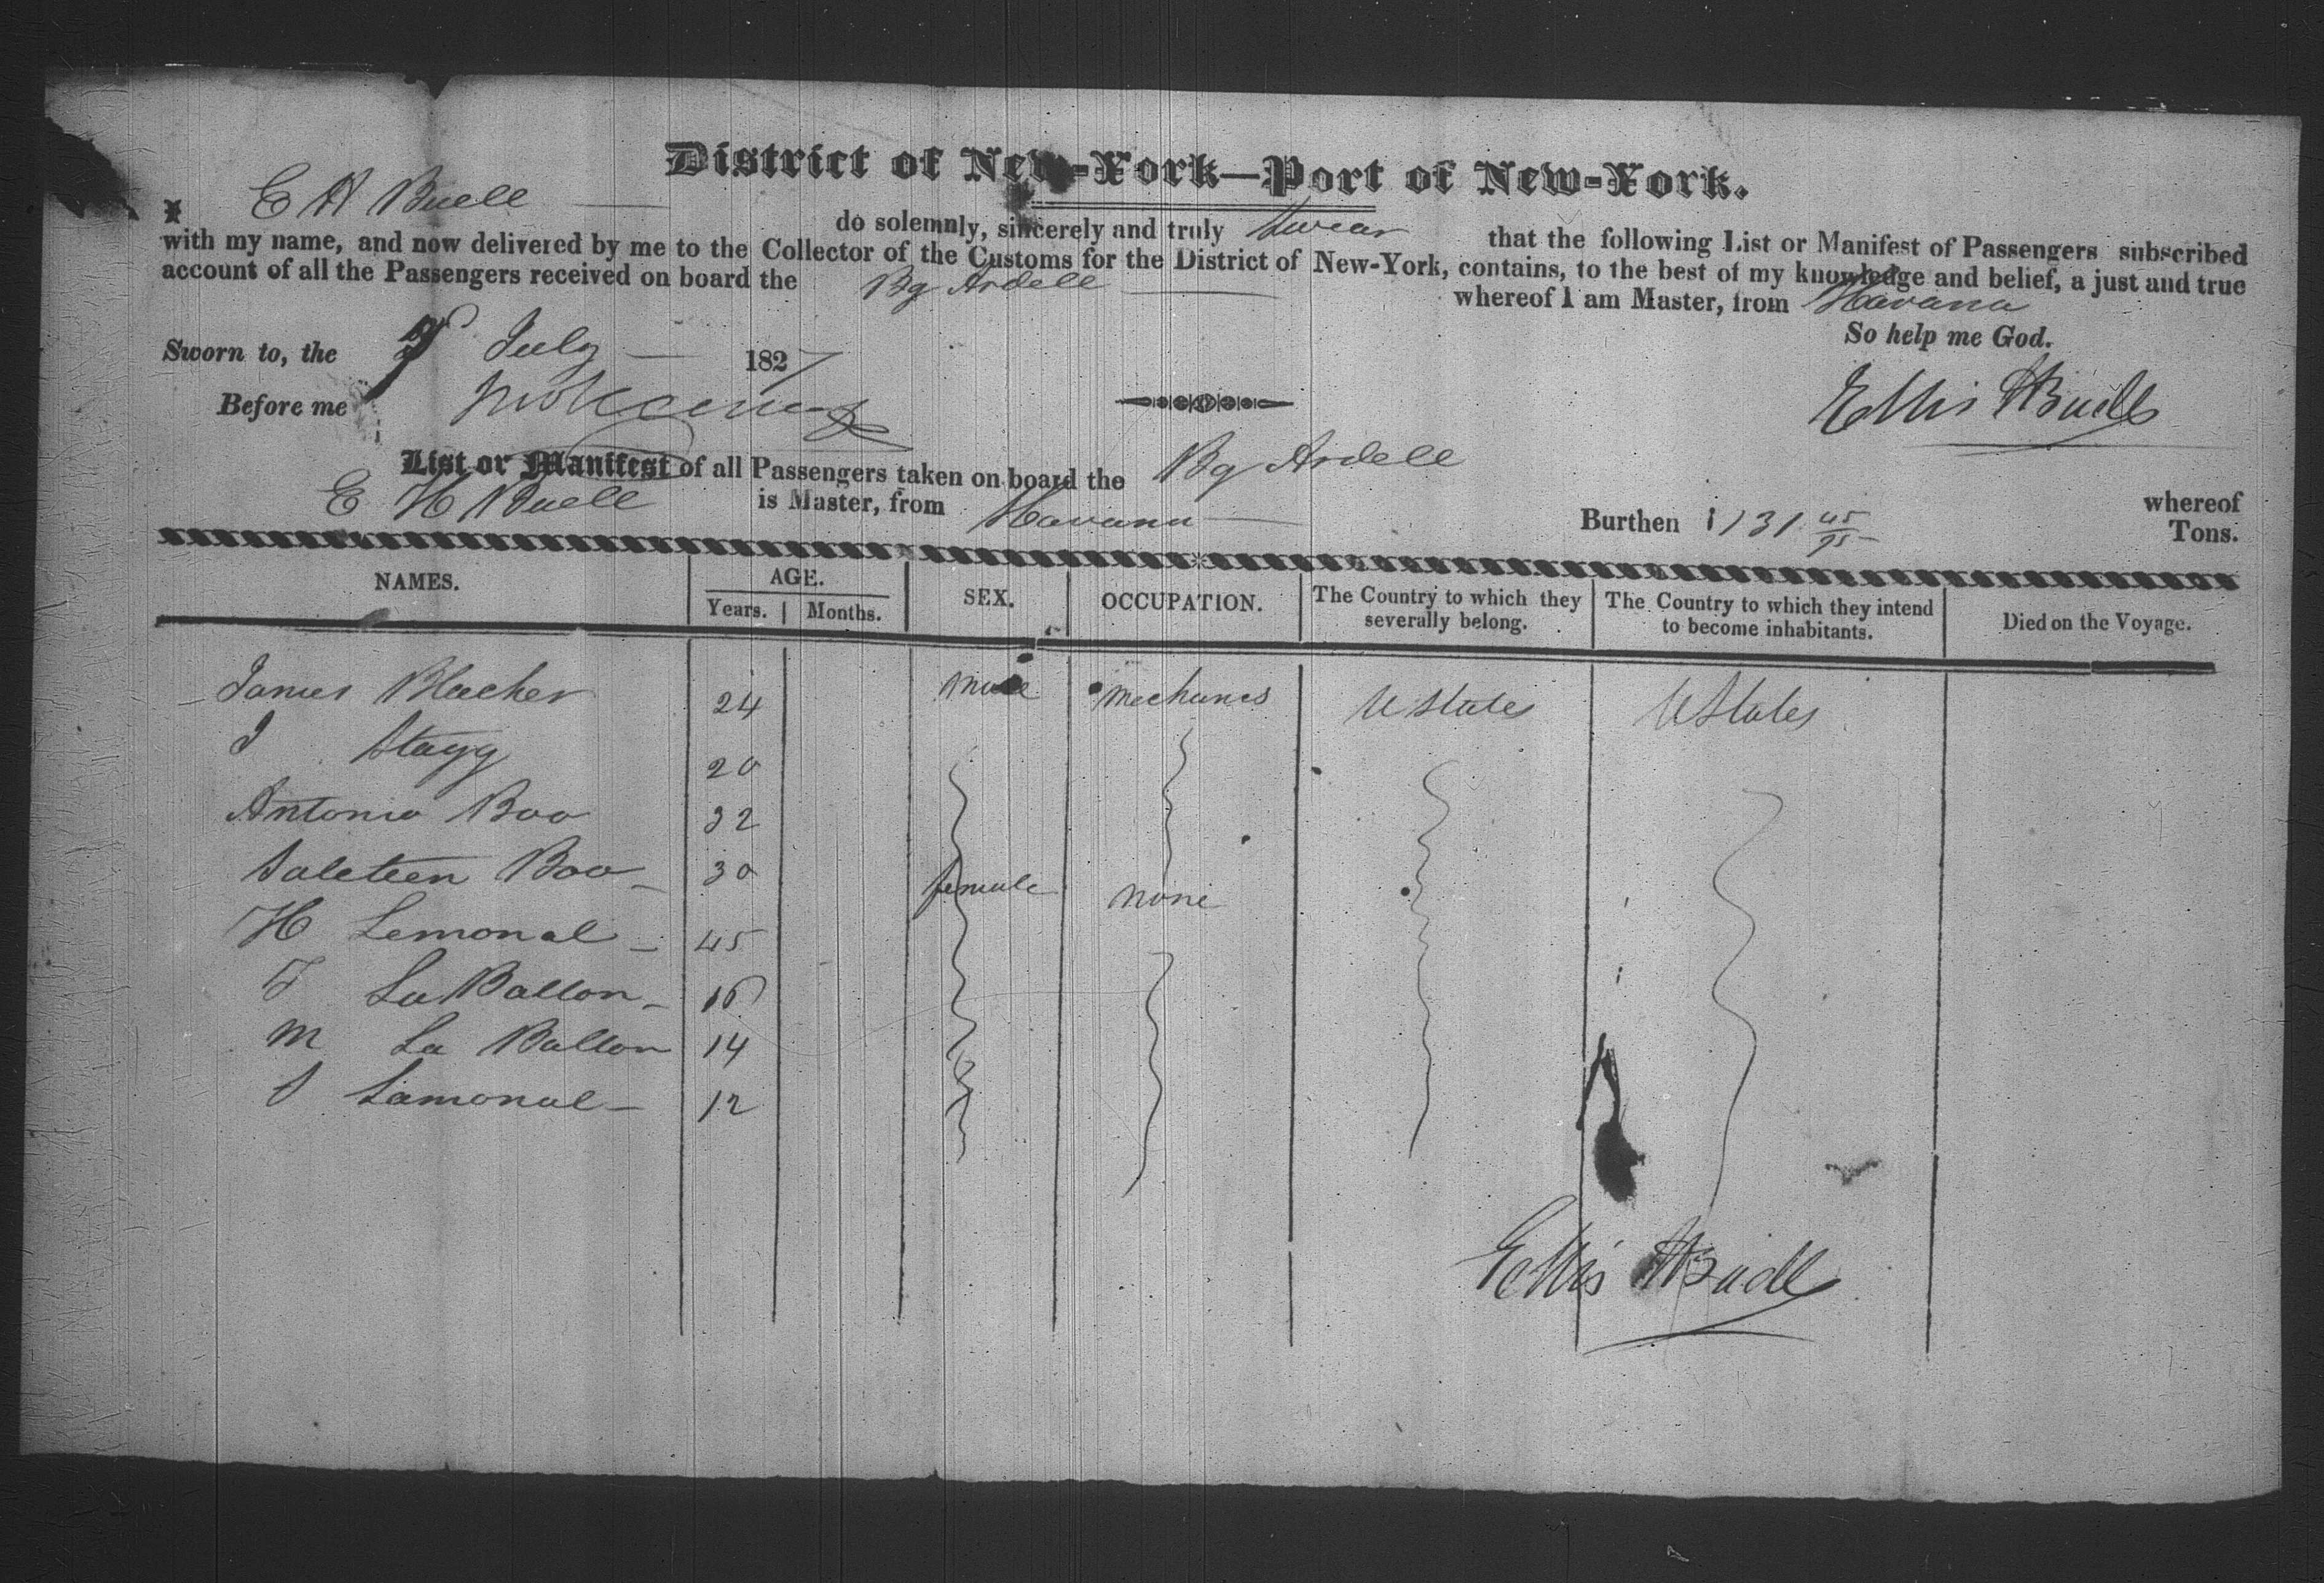 District of New-York—Port of New-York.
I E H Buell do solemnly, sincerely and truly swear that the following List or Manifest of Passengers subscribed
with my name, and now delivered by me to the Collector of the Customs for the District of New-York, contains, to the best of my knowledge and belief, a just and true
account of all the Passengers received on board the Bg Ardell whereof I am Master, from Havana
So help me God.
Sworn to, the July 1827
Before me
Ellis H Buell
List or Manifest of all Passengers taken on board the Bg Ardell whereof
E H Buell is Master, from Havana Burthen 131 45/95 Tons.
NAMES. AGE. Years. Months. SEX. OCCUPATION. The Country to which they severally belong. The Country to which they intend to become inhabitants. Died on the Voyage.
James Blacher 24 male mechanics U States U States
J Stagg 20
Antonio Boo 32
Saleteen Boo 30 female none
H Lemonal 45
La Ballon 16
M La Ballon 14
S Lamonal 12
Ellis H Buell